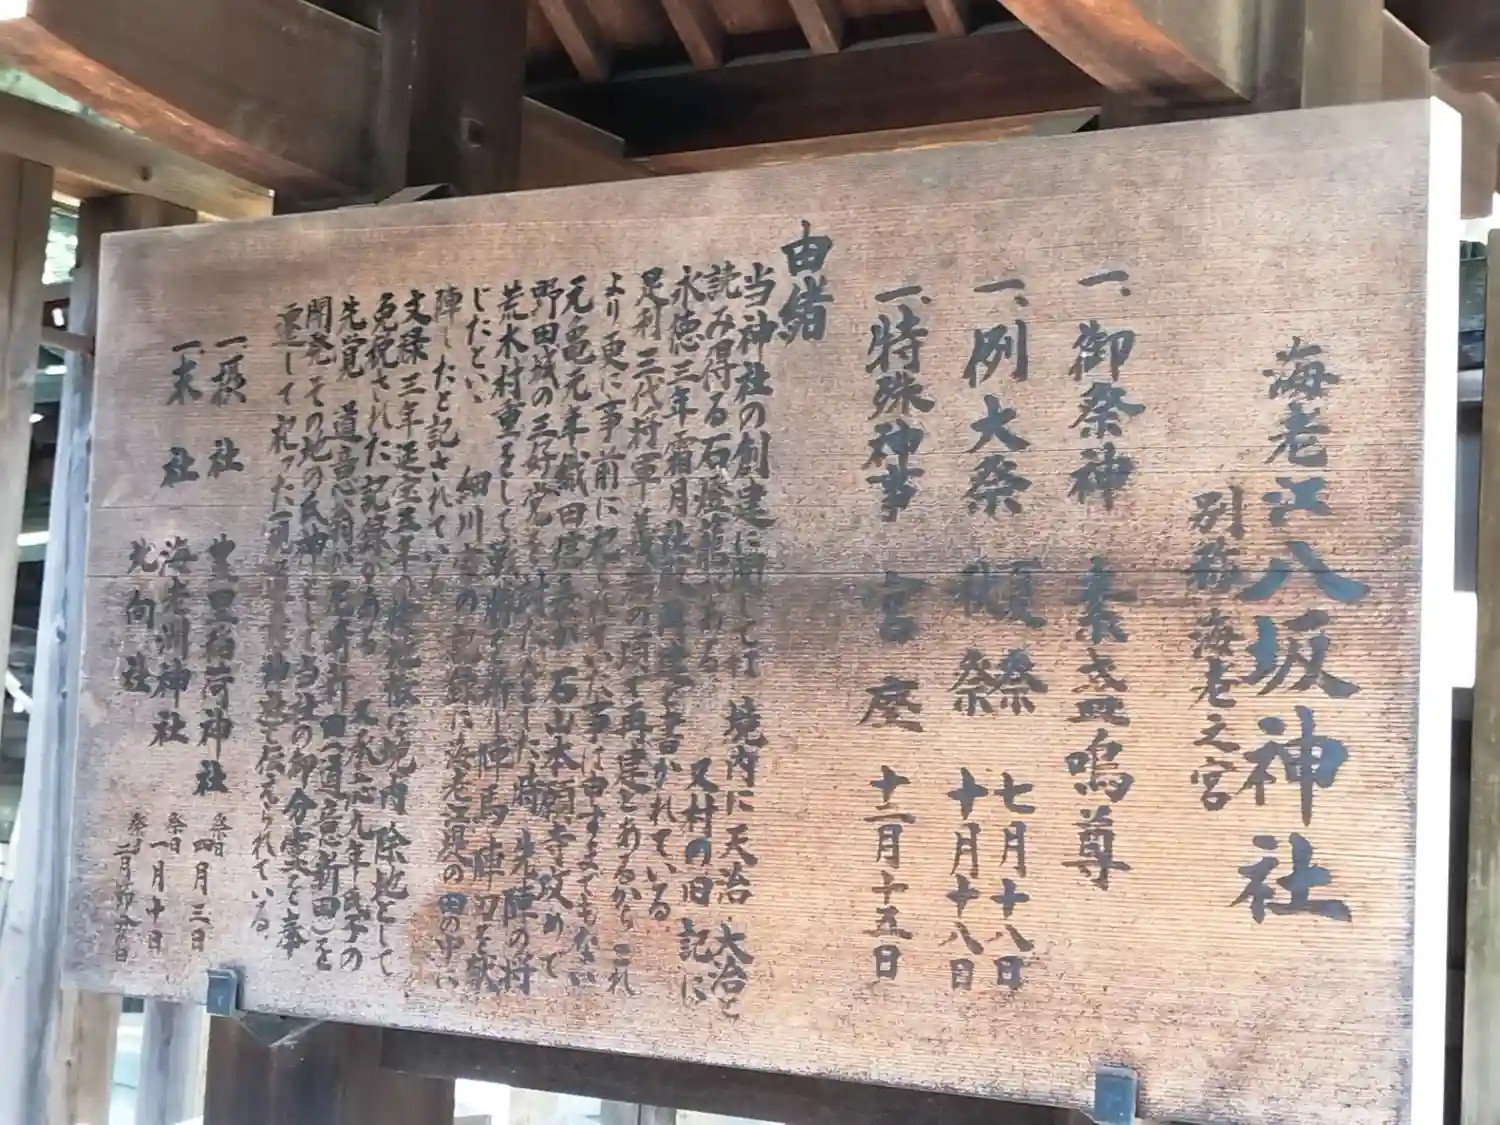 海老江八坂神社
別称 海老之宮
一、御祭神 素盞嗚尊
一、例大祭 夏祭 七月十八日
秋祭 十月十八日
一、特殊神事 宮座 十二月十五日
由緒
当神社の創建に関して 境内に天治 大治と
読み得る石燈籠がある 又村の旧記に
永徳三年霜月社殿再建と書かれている
足利三代将軍義満の頃で再建とあるから これ
より更に事前に祀られていた事は申すまでもない
元亀元年織田信長が石山本願寺攻めで
野田城の三好党を討たんとした時 先陣の将
荒木村重をして 陣馬 陣刀を献
じたという 細川 の記録に海老江堤の田の中に
陣したと記されている
文禄三年延宝五年の検地帳に境内除地として
免税された記録がある 又承応九年氏子の
先覚 道意翁が尼崎新田(道意新田)を
開発 その地の氏神として当社の御分霊を奉
還して祀った 伝えられている
一、摂社 豊里稲荷神社 祭日 四月三日
一、末社 海老洲神社 祭日 一月十日
祭日 二月節分の日